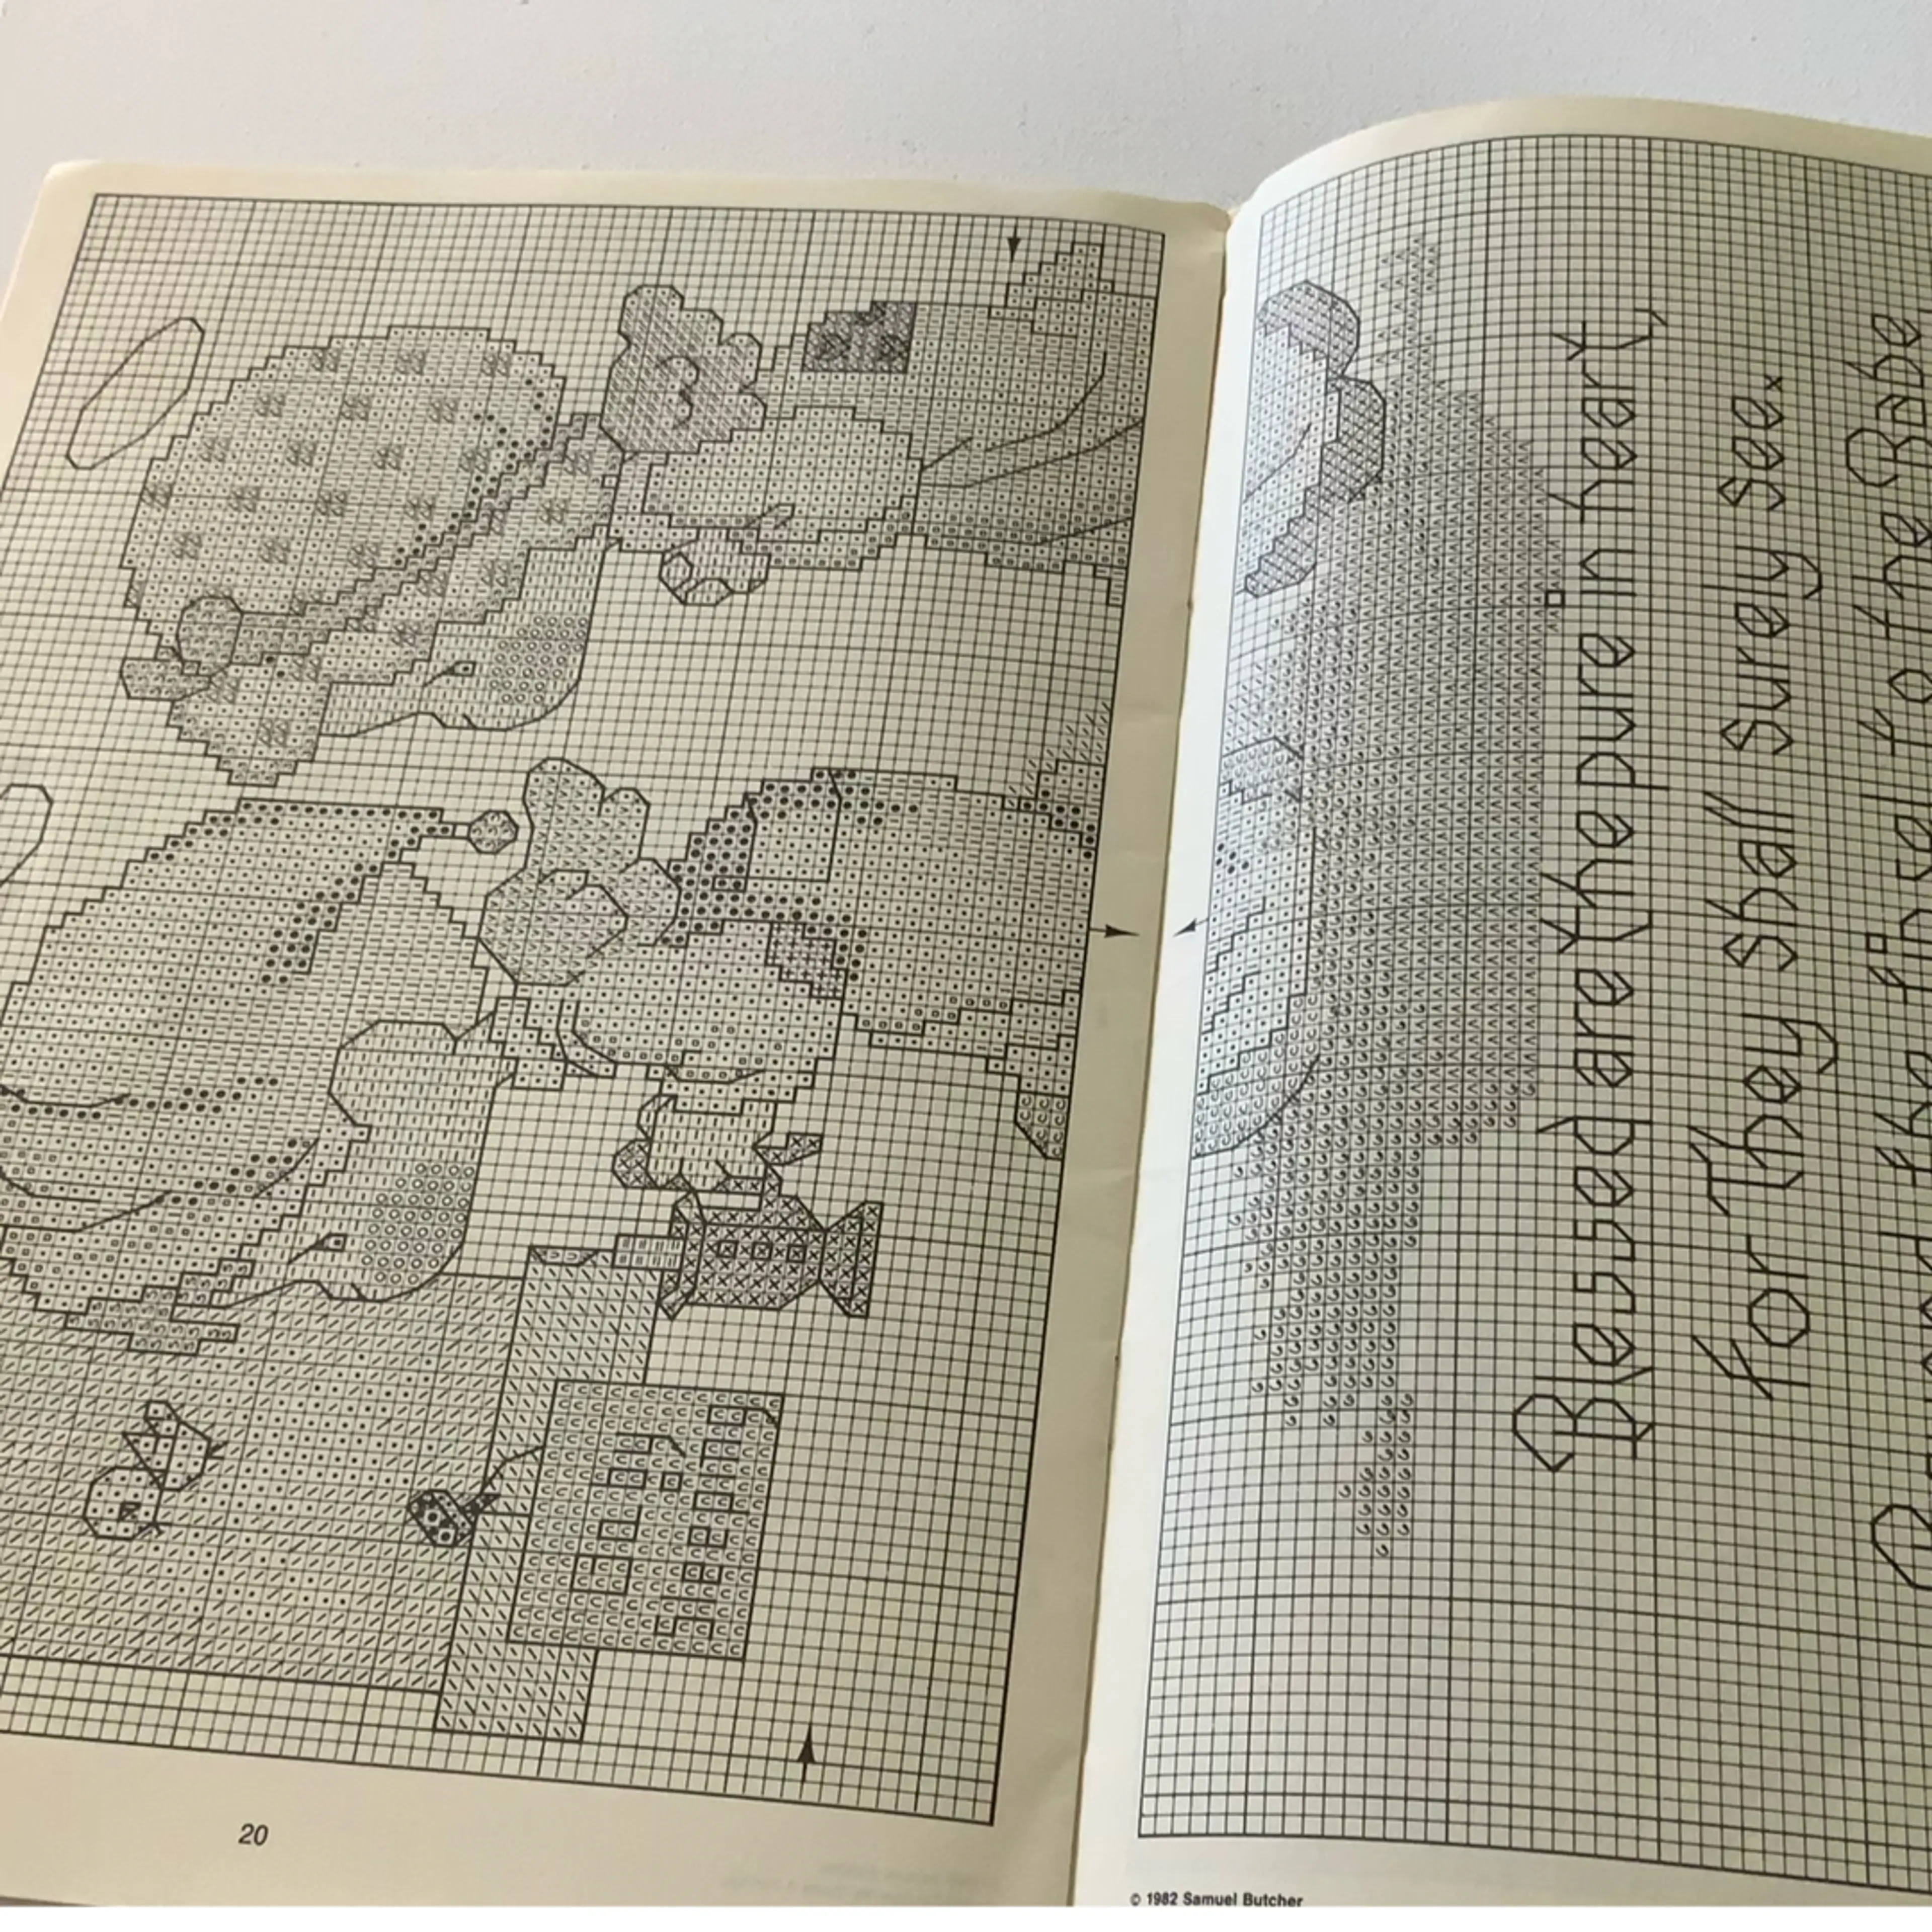 Blessed are the pure in heart,
For They Shall Surely See.
the Babe
20
© 1982 Samuel Butcher